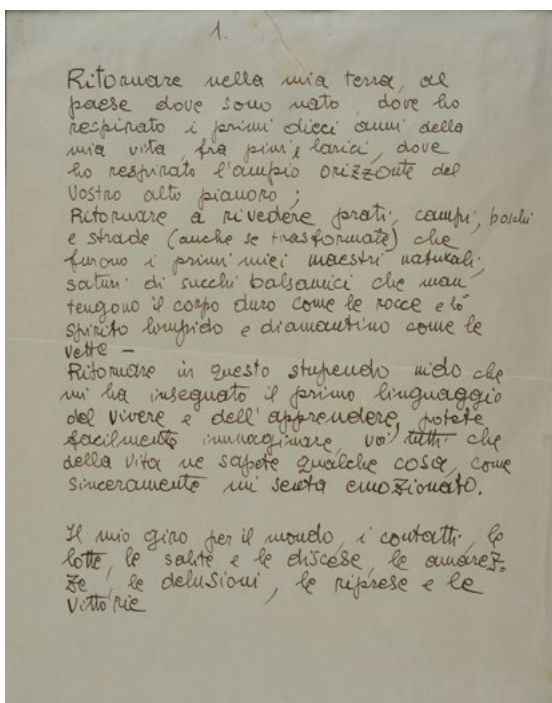 1.
Ritornare nella mia terra, al
paese dove sono nato, dove ho
respirato i primi dieci anni della
mia vita, fra pini e larici, dove
ho respirato l'ampio orizzonte del
Vostro alto pianoro;
Ritornare a rivedere prati, campi, boschi
e strade (anche se trasformate) che
furono i primi miei maestri naturali,
saturi di succhi balsamici che man
tengono il corpo duro come le rocce e lo
spirito limpido e diamantino come le
vette -
Ritornare in questo stupendo nido che
mi ha insegnato il primo linguaggio
del vivere e dell'apprendere, potete
facilmente immaginare, voi tutti che
della vita ne sapete qualche cosa, come
sinceramente mi senta emozionato.
Il mio giro per il mondo, i contatti, le
lotte, le salite e le discese, le amarez-
ze, le delusioni, le riprese e le
vittorie